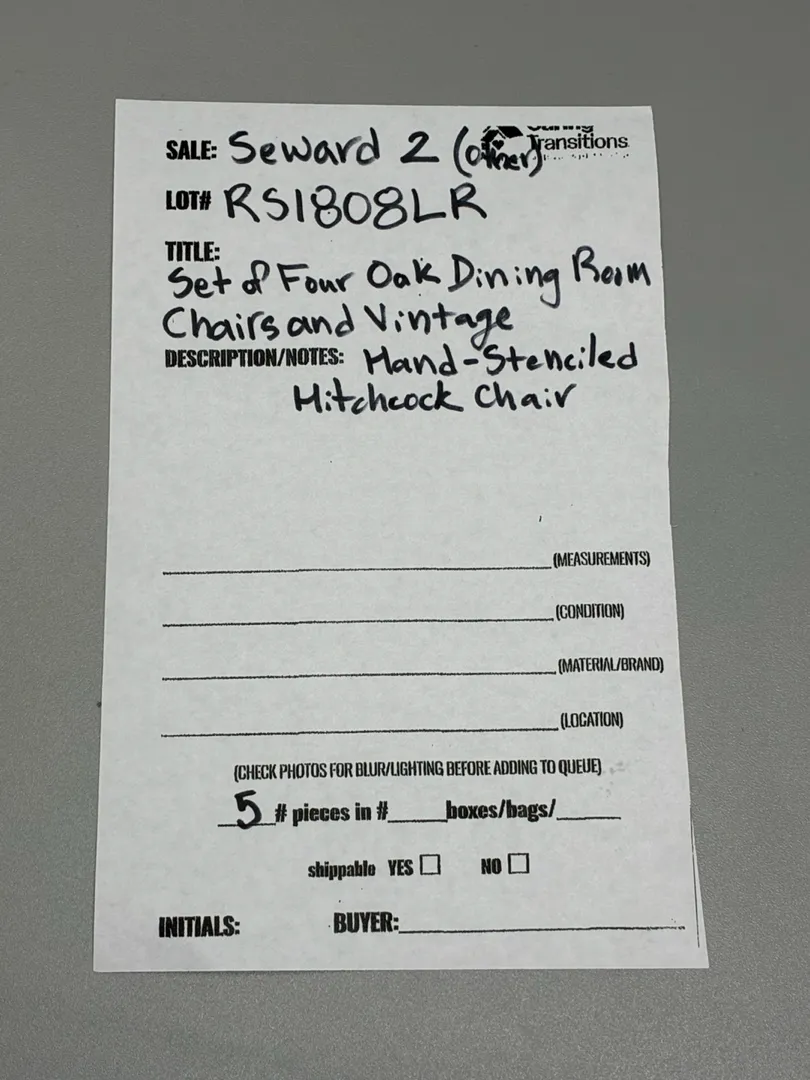 SALE: Seward 2 (other)
Transitions
LOT# RS1808LR
TITLE:
Set of Four Oak Dining Room
Chairs and Vintage
DESCRIPTION/NOTES: Hand-Stenciled
Hitchcock Chair
(MEASUREMENTS)
(CONDITION)
(MATERIAL/BRAND)
(LOCATION)
(CHECK PHOTOS FOR BLUR/LIGHTING BEFORE ADDING TO QUEUE)
5 # pieces in #______boxes/bags/______
shippable YES ☐ NO ☐
INITIALS: BUYER:______